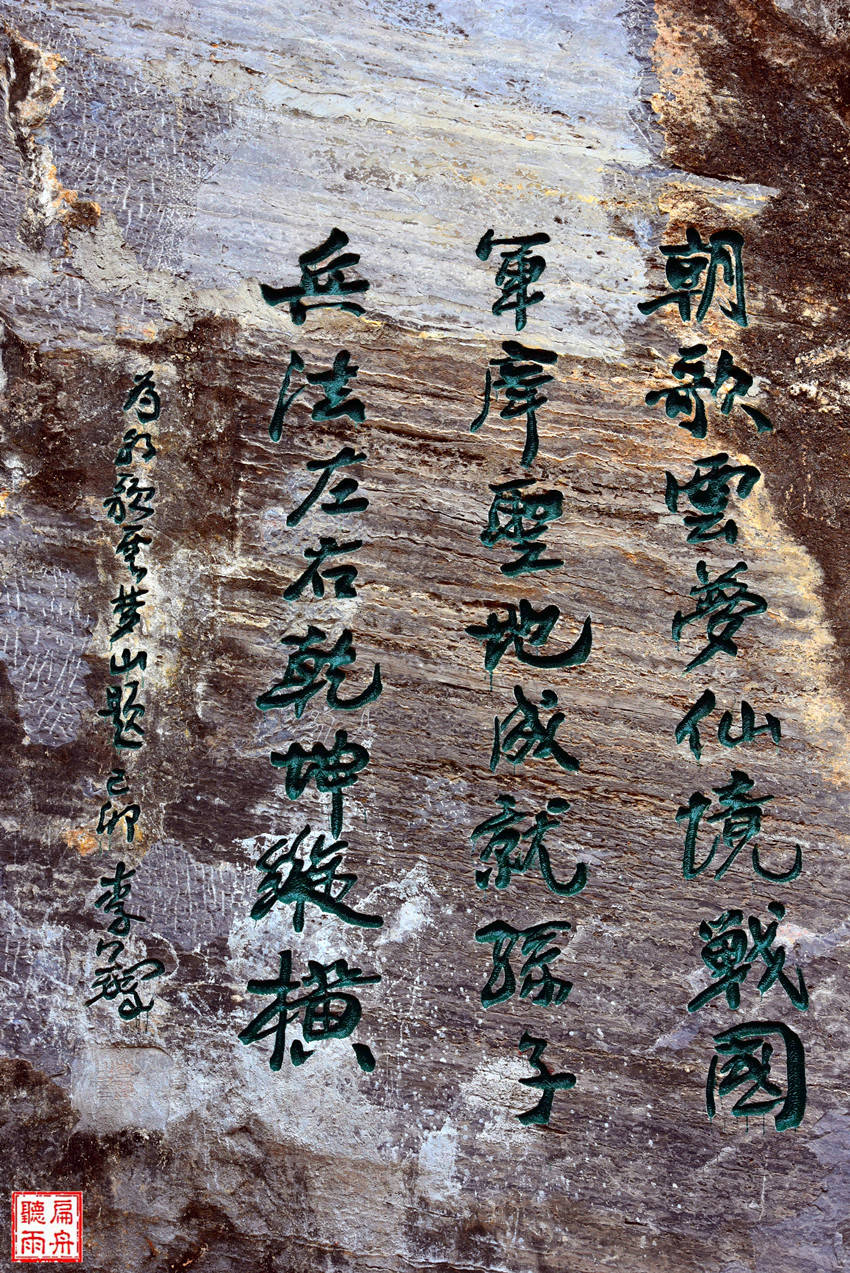 朝歌雲夢仙境戰國
軍庠聖地成就孫子
兵法左右乾坤縱橫
为朝歌云梦山题 己卯 李
扁舟
聽雨